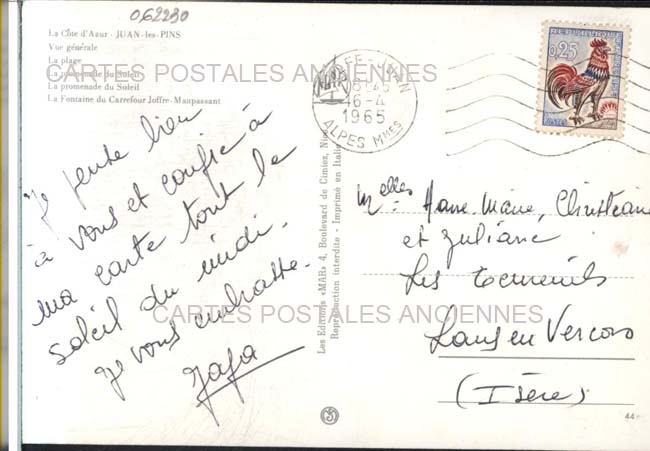 062230
La Côte d'Azur - JUAN-les-PINS
Vue générale
La plage
La promenade du Soleil
La promenade du Soleil
La Fontaine du Carrefour Joffre-Maupassant
CARTES POSTALES ANCIENNES
Je pense bien
à vous et confie à
ma carte tout le
soleil du midi.
Je vous embrasse.
Les Editions «MAR» 4, Boulevard de Cimiez,
Reproduction interdite - Imprimé en Italie
16-4
1965
ALPES Mmes
0,25
POSTES
Melles Anne-Marie, Christiane
et Juliane
Les
Lans en Vercors
(Isère)
CARTES POSTALES ANCIENNES
44